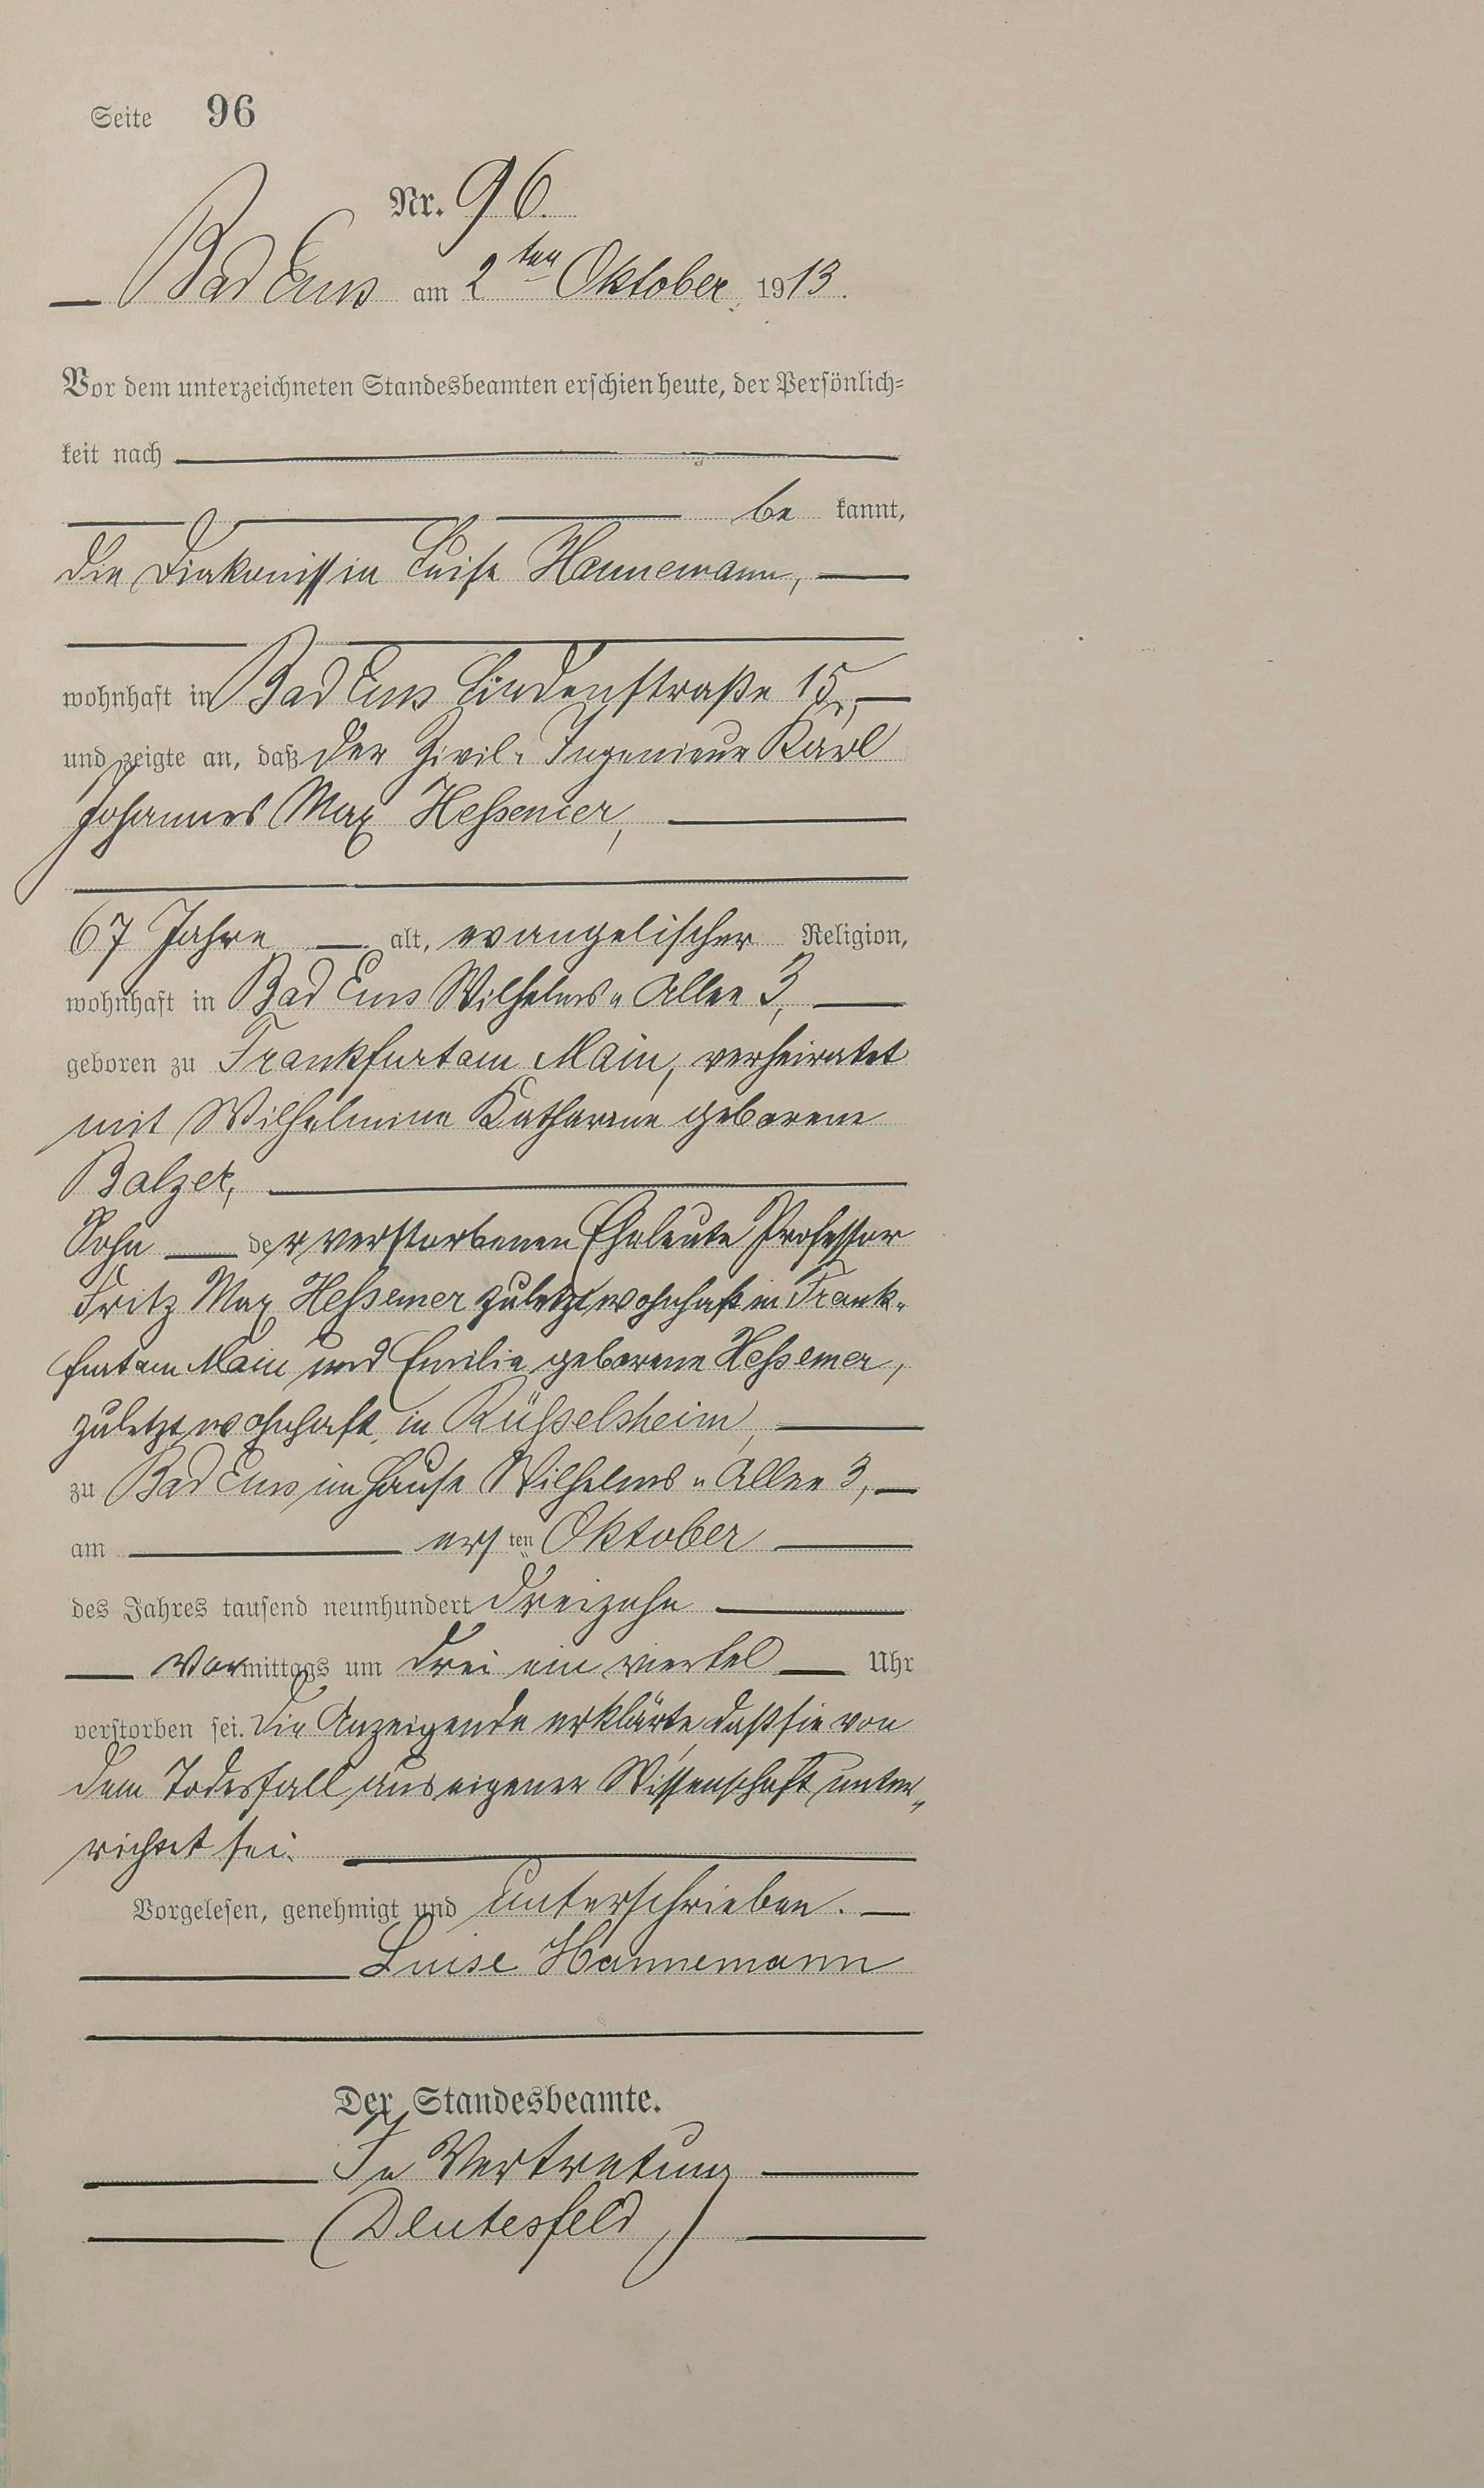 Seite 96
Nr. 96.
Bad Ems am 2ten Oktober 1913.
Vor dem unterzeichneten Standesbeamten erschien heute, der Persönlich-
keit nach
be kannt,
die Diakonissin Luise Hannemann,
wohnhaft in Bad Ems Lindenstraße 15,
und zeigte an, daß der Zivil-Ingenieur Karl
Johannes Max Heßemer,
67 Jahre alt, evangelischer Religion,
wohnhaft in Bad Ems Wilhelms-Allee 3,
geboren zu Frankfurt am Main, verheiratet
mit Wilhelmine Katharine geborene
Balzer,
Sohn der verstorbenen Eheleute Professor
Fritz Max Heßemer zuletzt wohnhaft in Frank-
furt am Main und Emilie geborene Heßemer,
zuletzt wohnhaft in Rüßelsheim,
zu Bad Ems im Hause Wilhelms-Allee 3,
am ersten Oktober
des Jahres tausend neunhundert dreizehn
Vormittags um drei ein viertel Uhr
verstorben sei. Die Anzeigende erklärte, daß sie von
dem Todesfall aus eigener Wissenschaft unter-
richtet sei.
Vorgelesen, genehmigt und unterschrieben.
Luise Hannemann
Der Standesbeamte.
In Vertretung
(Deutesfeld)